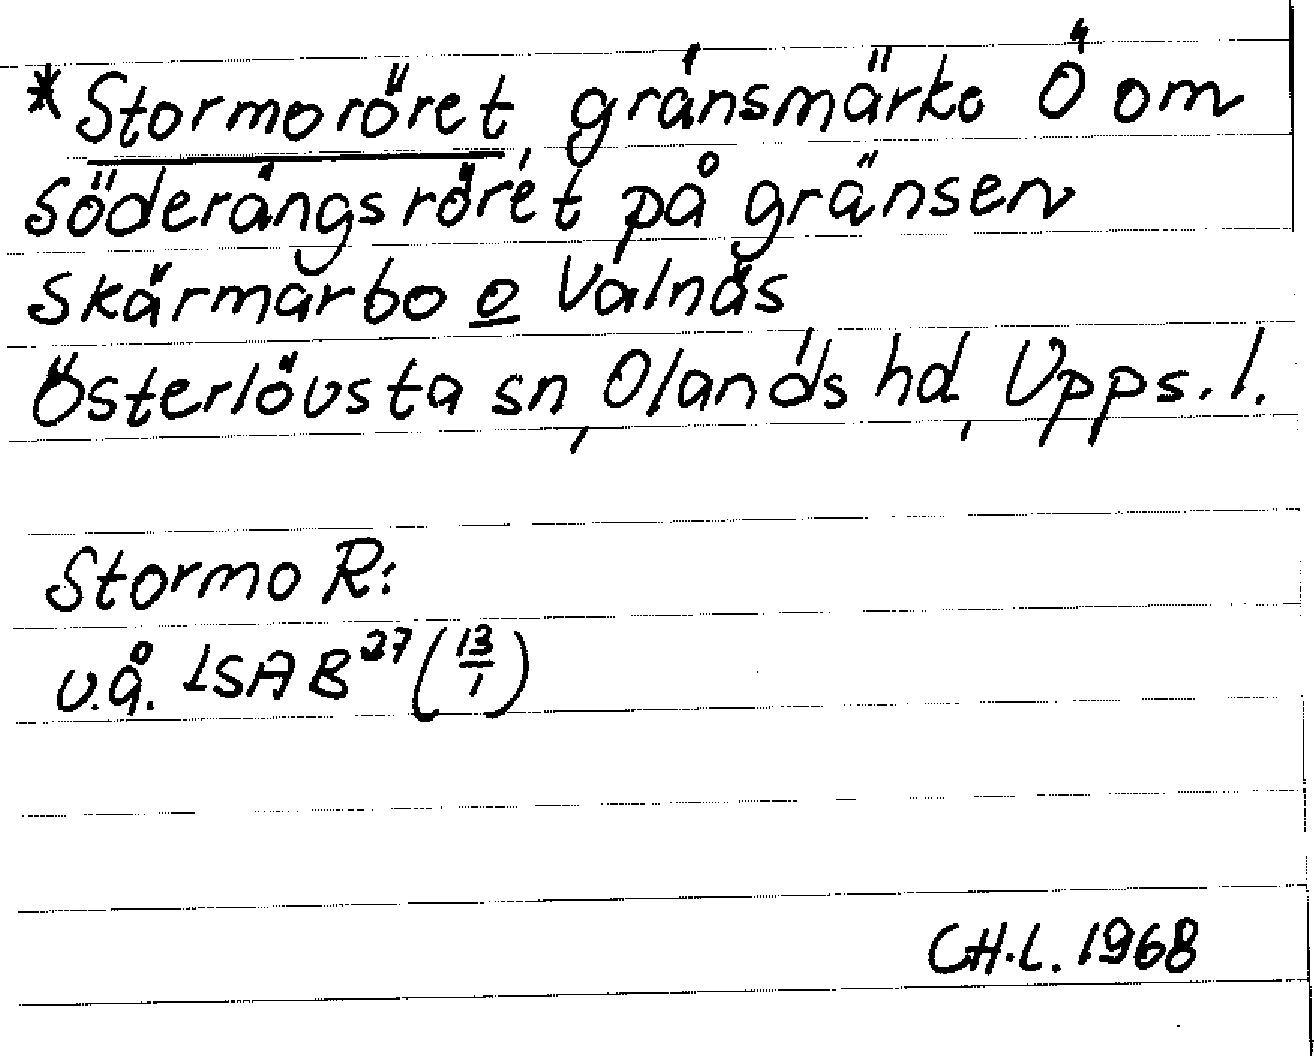 *Stormoröret, gränsmärke Ö om
Söderängsröret på gränsen
Skärmarbo o Valnäs
Österlövsta sn, Olands hd, Upps. l.
Stormo R:
u.å. LSA B27 (13/1)
CH.L. 1968